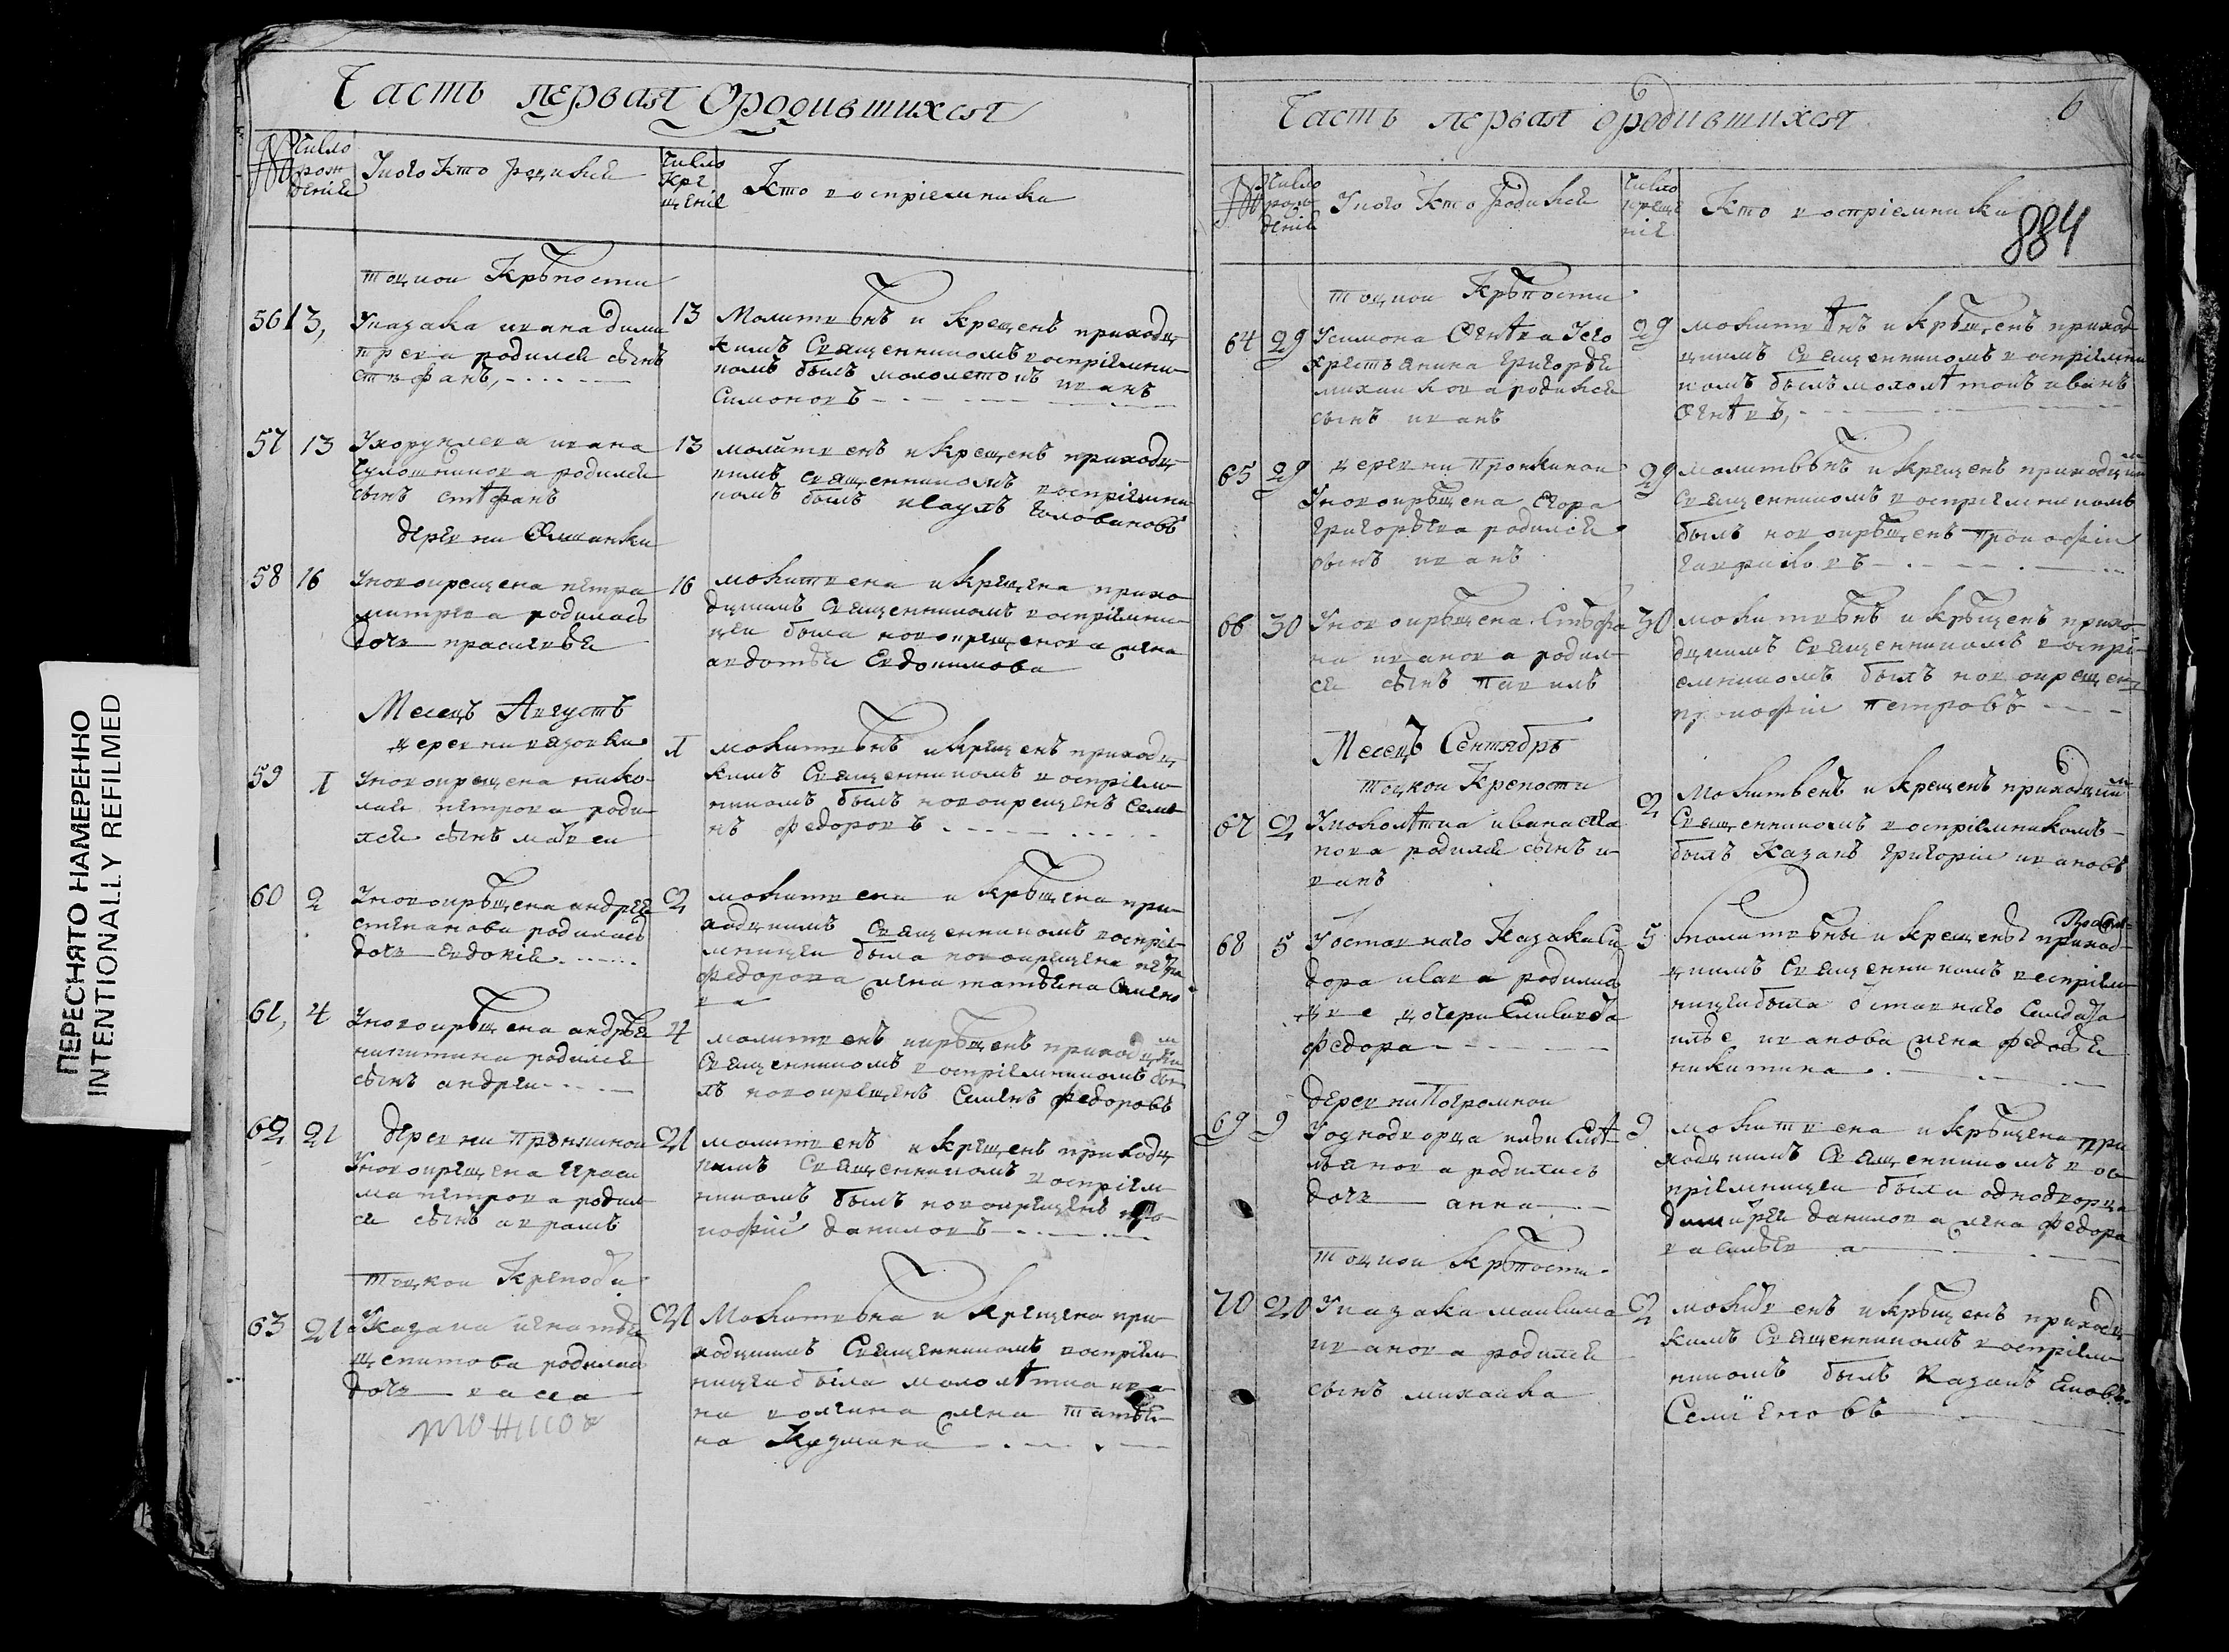 ПЕРЕСНЯТО НАМЕРЕННО
INTENTIONALLY REFILMED
Часть первая Ородившихся
№
Число рож денiи
Уного кто родился
Число кре щенiе
Кто воспрiемники
тоцкои Крѣпости
56 13, Указака ивана дими
трева родился сынъ
стефанъ,
13 Молитвѣнъ и крещенъ приходц
кимъ Священникомъ воспрiемни
комъ былъ малолетокъ иванъ
Симоновъ
57 13 Ухорунжева ивана
родился
сынъ стѣфанъ
13 молитвенъ и крещенъ приходц
кимъ священникомъ воспрiемни
комъ былъ Головановъ
деревни Ольшанки
58 16 Уновокрещена петра
митрева родилась
дочь прасковья
16 молитвена и крещена прихо
дцкимъ Священникомъ воспрiемни
цеи была новокрещенова жена
авдотья Евдокимова
Месецъ Августъ
деревни вязовки
59 1 Уновокрещена нико
лаи петрова роди
лся сынъ матвеи
1 молитвѣнъ и крещенъ приходц
кимъ Священникомъ воспрiем
никомъ былъ новокрещенъ семе
нъ федоровъ
60 2 Уновокрѣщена андрея
степанова родилась
дочь Евдокiя
2 молитвена и крѣщена при
ходцкимъ Священникомъ воспрiе
мницеи была новокрещена петра
федорова жена татьяна Семено
ва
61, 4 Уновокрѣщена андрѣя
никитина родился
сынъ андреи
4 молитвенъ икрѣщенъ приходцким
Священникомъ воспрiемникомъ бы
лъ новокрещенъ Семенъ федоровъ
62 21 деревни Пронкинои
Уновокрещена гераси
ма петрова родил
ся сынъ аврамъ
21 молитвенъ и крещенъ приходц
кимъ Священникомъ воспрiем
никомъ былъ новокрещенъ про
кофiй даниловъ
тоцкои Крепости
63 21 Указака игнатья
щепитова родилась
дочь васса
21 Молитвѣна и крещена при
ходцкимъ Священникомъ воспрiем
ницеи была малолѣтка ива
на волгина жена татья
на Кузмина
Часть первая ородившихся
6
№
Число рож денiи
Уного кто родился
Число креще нiе
Кто воспрiемники
884
тоцкои Крѣпости
64 29 Усимона Огнѣва Уего
хрестьянина григорья
михаилова родился
сынъ иванъ
29 молитвѣнъ и крѣщенъ приход
цкимъ Священникомъ воспрiемни
комъ былъ малолѣтокъ иванъ
Огнѣвъ,
65 29 деревни Пронкинои
Уновокрѣщена Егора
григорьева родился
сынъ иванъ
29 молитвѣнъ и крещенъ приходцким
Священникомъ воспрiемникомъ
былъ новокрѣщенъ Прокофiи
гавриловъ
66 30 Уновокрѣщена Стѣфа
на иванова родил
ся сынъ павилъ
30 молитвѣнъ и крѣщенъ прихо
дцкимъ Священникомъ воспрi
емникомъ былъ новокрещен
прокофiи Петровъ
Месецъ Сентябръ
тоцкои Крепости
67 2 Умалолѣтка ивана
нова родился сынъ и
ванъ
2 Молитвенъ и крещенъ приходцким
Священникомъ воспрiемникомъ
былъ Казакъ григорiи ивановъ
68 5 Уоставнаго Казака Си
дора родились
две дочери Елисавета
федора
5 молитвѣны и крещены приход
цкимъ Священникомъ воспрiем
ницеи была оставнаго Салдата
илье иванова жена федосья
никитина
деревни Погромнои
69 9 Уоднодворца ильи Емѣ
льянова родилась
дочь анна
9 молитвена и крѣщена при
ходцкимъ Священникомъ вос
прiемницеи была однодворца
димитреи данилова жена федора
васильева
тоцкои Крѣпости
70 20 Указака максима
иванова родился
сынъ михаила
2 молитвенъ и крѣщенъ приходц
кимъ Священникомъ воспрiем
никомъ былъ Казакъ
Семиёновъ